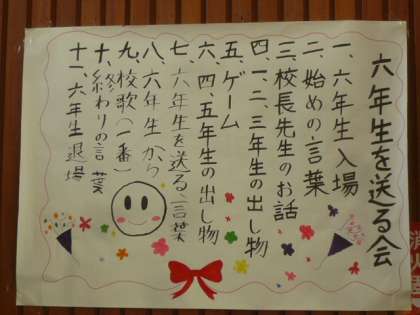 六年生を送る会
一、六年生入場
二、始めの言葉
三、校長先生のお話
四、一、二、三年生の出し物
五、ゲーム
六、四、五年生の出し物
七、六年生を送る言葉
八、六年生から
九、校歌（一番）
十、終わりの言葉
十一、六年生退場
消火